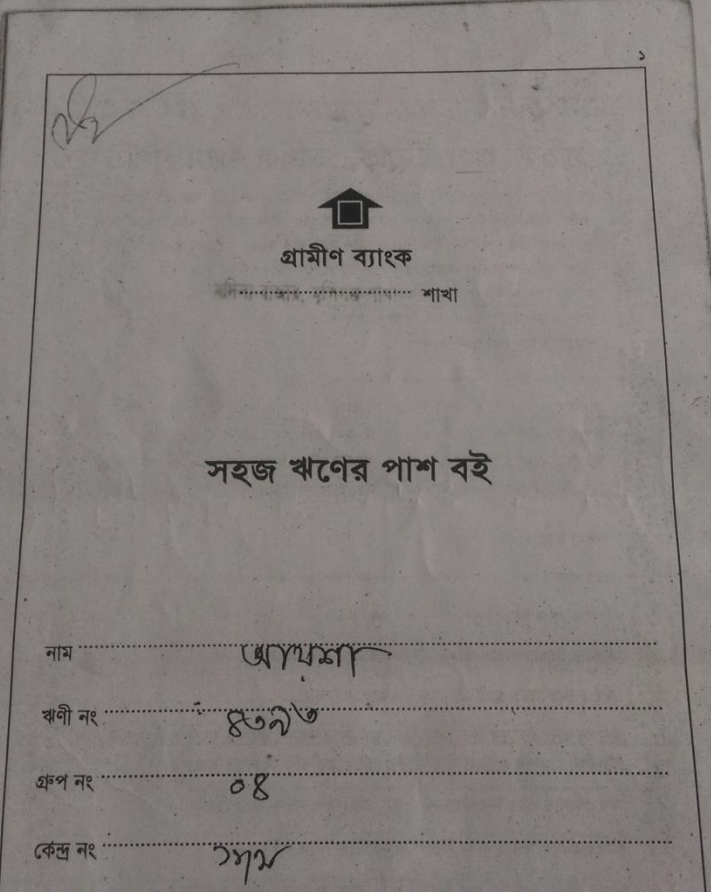 ১
গ্রামীণ ব্যাংক
শাখা
সহজ ঋণের পাশ বই
নাম আয়শা
ঋণী নং
গ্রুপ নং ০৪
কেন্দ্র নং